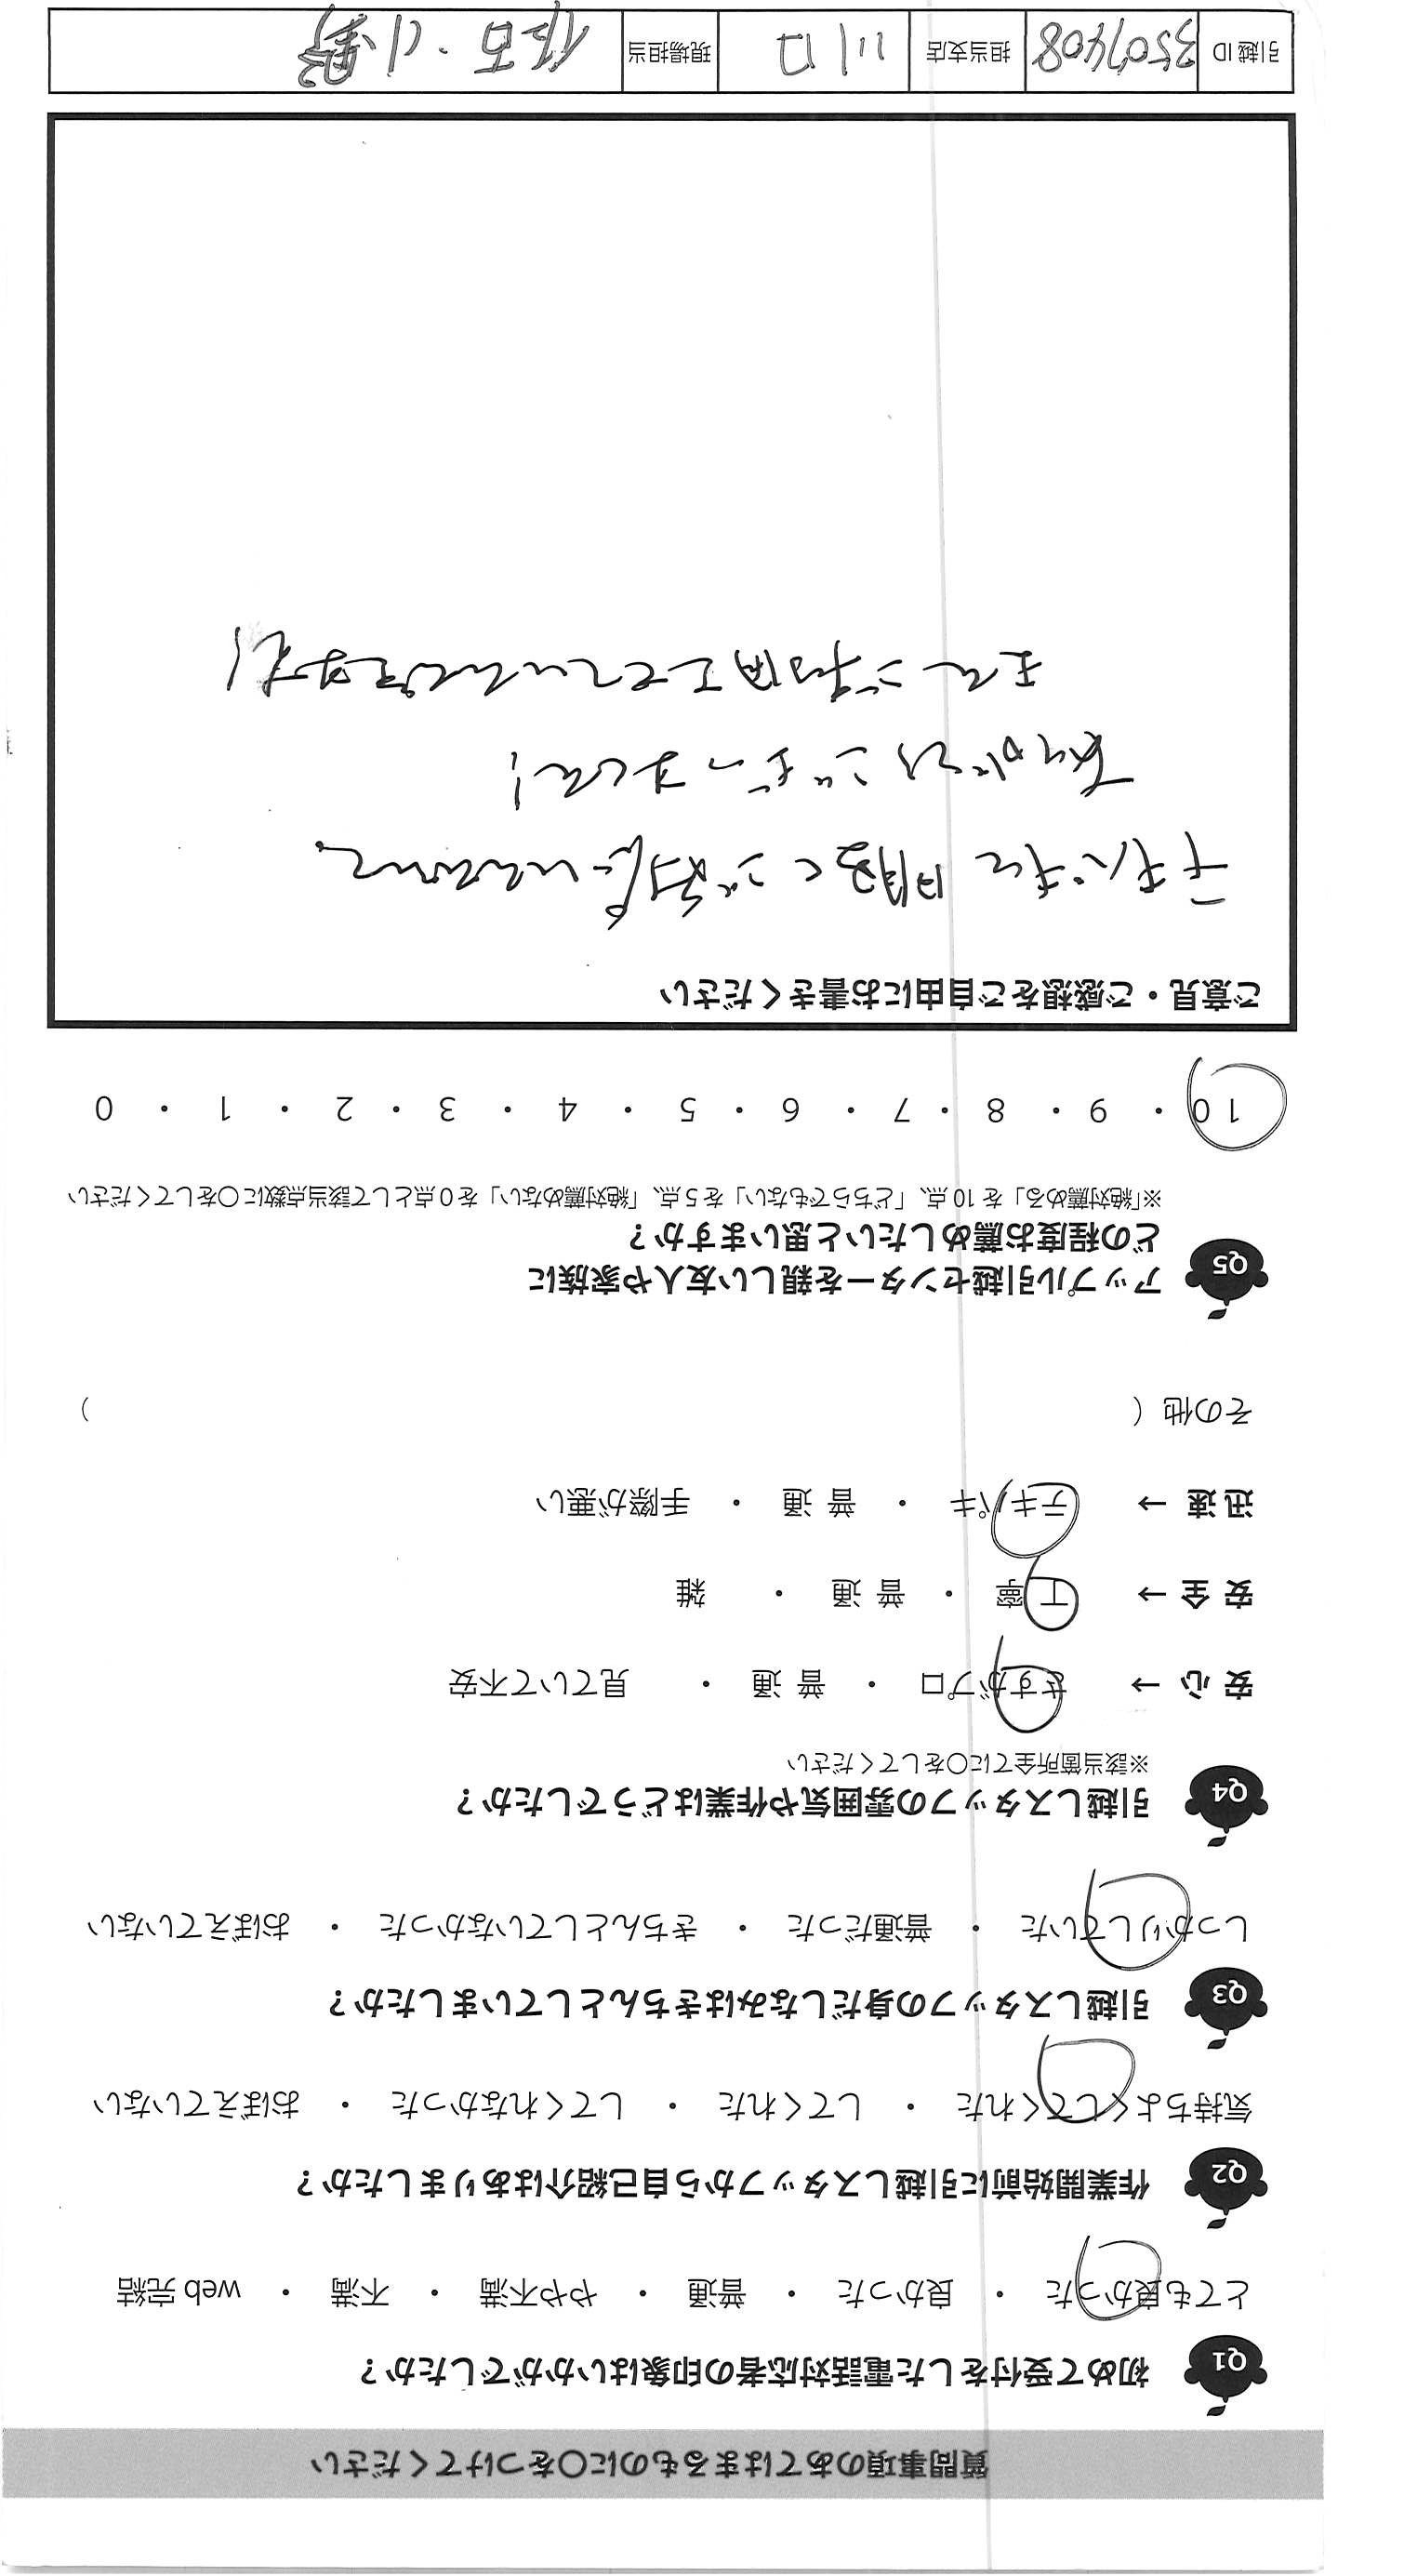 質問事項のあてはまるものに〇をつけてください
Q1 初めて受付をした電話対応者の印象はいかがでしたか？
とても良かった ・ 良かった ・ 普通 ・ やや不満 ・ 不満 ・ web 完結
Q2 作業開始前に引越しスタッフから自己紹介はありましたか？
気持ちよくしてくれた ・ してくれた ・ してくれなかった ・ おぼえていない
Q3 引越しスタッフの身だしなみはきちんとしていましたか？
しっかりしていた ・ 普通だった ・ きちんとしていなかった ・ おぼえていない
Q4 引越しスタッフの雰囲気や作業はどうでしたか？
※該当箇所全てに〇をしてください
安 心 → さすがプロ ・ 普 通 ・ 見ていて不安
安 全 → 丁 寧 ・ 普 通 ・ 雑
迅 速 → テキパキ ・ 普 通 ・ 手際が悪い
その他 （ ）
Q5 アップル引越センターを親しい友人や家族に
どの程度お薦めしたいと思いますか？
※「絶対薦める」を 10 点、「どちらでもない」を 5 点、「絶対薦めない」を 0 点として該当点数に〇をしてください
10 ・ 9 ・ 8 ・ 7 ・ 6 ・ 5 ・ 4 ・ 3 ・ 2 ・ 1 ・ 0
ご意見・ご感想をご自由にお書きください
テキパキと 明るくご対応いただいて。
ありがとうございました！
またご利用していただきます！
引越 ID 3507408 担当支店 川口 現場担当 ・小野